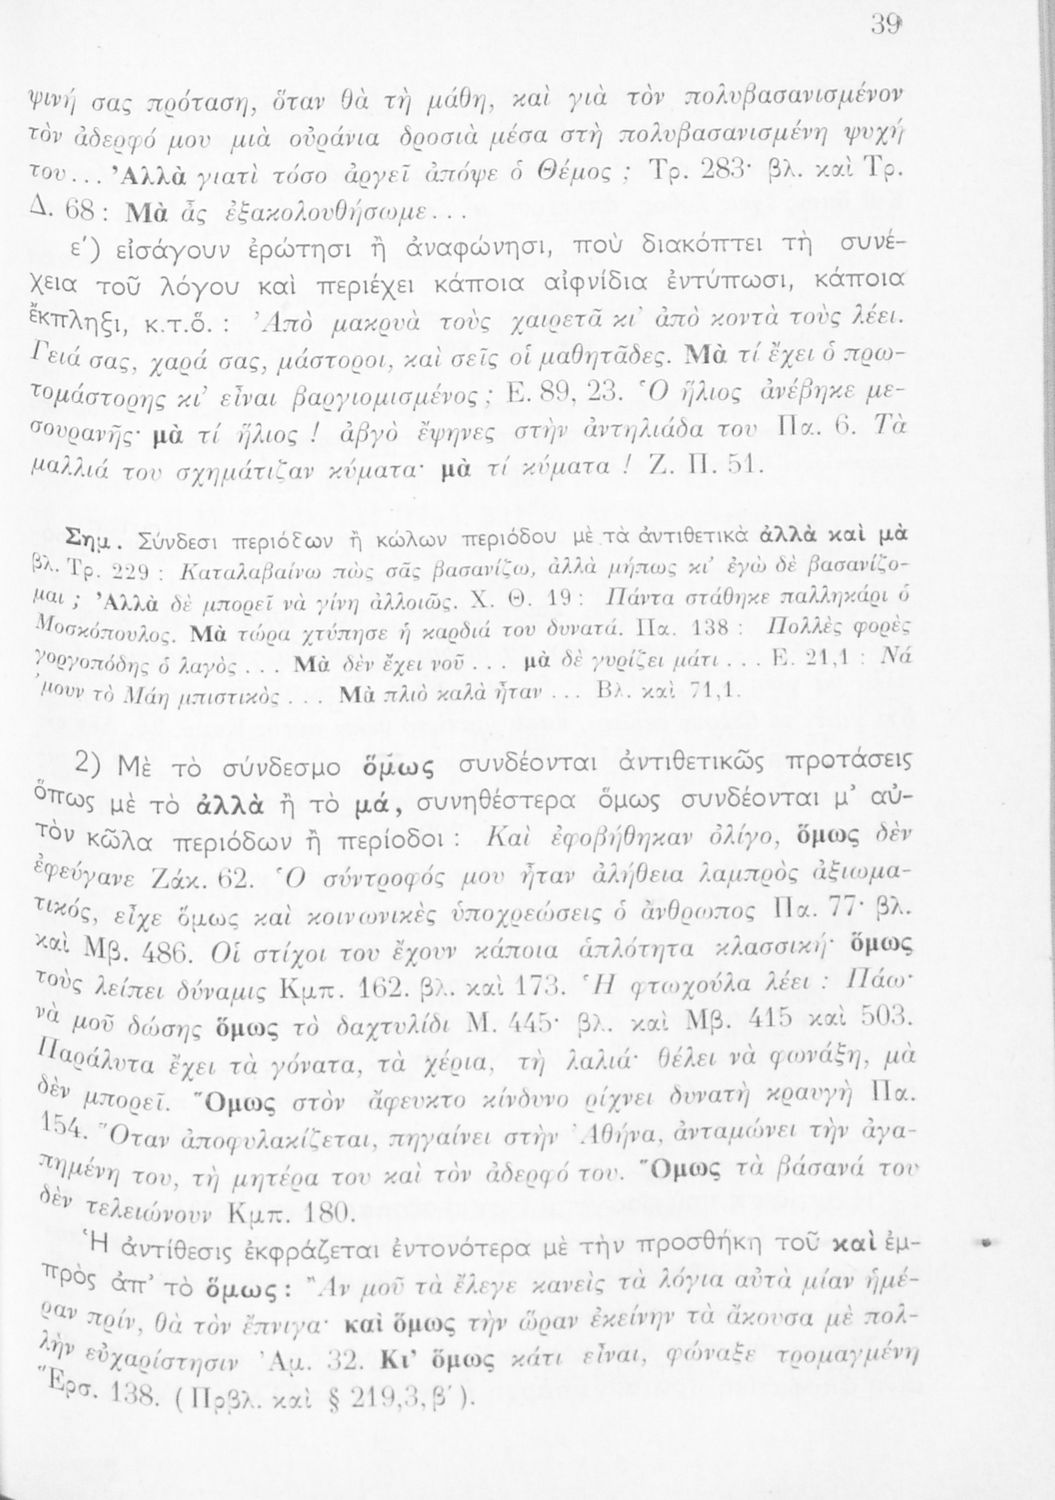 39
ψινή σας πρόταση, ὅταν θὰ τὴ μάθη, καὶ γιὰ τὸν πολυβασανισμένον
τὸν ἀδερφό μου μιὰ οὐράνια δροσιὰ μέσα στὴ πολυβασανισμένη ψυχή
του... Ἀλλὰ γιατὶ τόσο ἀργεῖ ἀπόψε ὁ Θέμος ; Τρ. 283· βλ. καὶ Τρ.
Δ. 68 : Μὰ ἂς ἐξακολουθήσωμε...
ε΄) εἰσάγουν ἐρώτησι ἢ ἀναφώνησι, ποὺ διακόπτει τὴ συνέ-
χεια τοῦ λόγου καὶ περιέχει κάποια αἰφνίδια ἐντύπωσι, κάποια
ἔκπληξι, κ.τ.ὅ. : Ἀπὸ μακρυὰ τοὺς χαιρετᾶ κι᾿ ἀπὸ κοντὰ τοὺς λέει.
Γειά σας, χαρά σας, μάστοροι, καὶ σεῖς οἱ μαθητᾶδες. Μὰ τί ἔχει ὁ πρω-
τομάστορης κι᾿ εἶναι βαργιομισμένος ; Ε. 89, 23. Ὁ ἥλιος ἀνέβηκε με-
σουρανῆς· μὰ τί ἥλιος ! ἀβγὸ ἔψηνες στὴν ἀντηλιάδα του Πα. 6. Τὰ
μαλλιά του σχημάτιζαν κύματα· μὰ τί κύματα ! Ζ. Π. 51.
Σημ. Σύνδεσι περιόδων ἢ κώλων περιόδου μὲ τὰ ἀντιθετικὰ ἀλλὰ καὶ μὰ
βλ. Τρ. 229 : Καταλαβαίνω πὼς σᾶς βασανίζω, ἀλλὰ μήπως κι᾿ ἐγὼ δὲ βασανίζο-
μαι ; Ἀλλὰ δὲ μπορεῖ νὰ γίνη ἀλλοιῶς. Χ. Θ. 19 : Πάντα στάθηκε παλληκάρι ὁ
Μοσκόπουλος. Μὰ τώρα χτύπησε ἡ καρδιά του δυνατά. Πα. 138 : Πολλὲς φορὲς
γοργοπόδης ὁ λαγὸς ... Μὰ δὲν ἔχει νοῦ ... μὰ δὲ γυρίζει μάτι ... Ε. 21,1 : Νά
᾿μουν τὸ Μάη μπιστικὸς ... Μὰ πλιὸ καλὰ ἦταν ... Βλ. καὶ 71,1.
2) Μὲ τὸ σύνδεσμο ὅμως συνδέονται ἀντιθετικῶς προτάσεις
ὅπως μὲ τὸ ἀλλὰ ἢ τὸ μά, συνηθέστερα ὅμως συνδέονται μ᾿ αὐ-
τὸν κῶλα περιόδων ἢ περίοδοι : Καὶ ἐφοβήθηκαν ὀλίγο, ὅμως δὲν
ἐφεύγανε Ζάκ. 62. Ὁ σύντροφός μου ἦταν ἀλήθεια λαμπρὸς ἀξιωμα-
τικός, εἶχε ὅμως καὶ κοινωνικὲς ὑποχρεώσεις ὁ ἄνθρωπος Πα. 77· βλ.
καὶ Μβ. 486. Οἱ στίχοι του ἔχουν κάποια ἁπλότητα κλασσική· ὅμως
τοὺς λείπει δύναμις Κμπ. 162. βλ. καὶ 173. Ἡ φτωχούλα λέει : Πάω·
νὰ μοῦ δώσης ὅμως τὸ δαχτυλίδι Μ. 445· βλ. καὶ Μβ. 415 καὶ 503.
Παράλυτα ἔχει τὰ γόνατα, τὰ χέρια, τὴ λαλιά· θέλει νὰ φωνάξη, μὰ
δὲν μπορεῖ. Ὅμως στὸν ἄφευκτο κίνδυνο ρίχνει δυνατὴ κραυγὴ Πα.
154. Ὅταν ἀποφυλακίζεται, πηγαίνει στὴν Ἀθήνα, ἀνταμώνει τὴν ἀγα-
πημένη του, τὴ μητέρα του καὶ τὸν ἀδερφό του. Ὅμως τὰ βάσανά του
δὲν τελειώνουν Κμπ. 180.
Ἡ ἀντίθεσις ἐκφράζεται ἐντονότερα μὲ τὴν προσθήκη τοῦ καὶ ἐμ-
πρὸς ἀπ᾿ τὸ ὅμως : Ἂν μοῦ τὰ ἔλεγε κανεὶς τὰ λόγια αὐτὰ μίαν ἡμέ-
ραν πρίν, θὰ τὸν ἔπνιγα· καὶ ὅμως τὴν ὥραν ἐκείνην τὰ ἄκουσα μὲ πολ-
λὴν εὐχαρίστησιν Ἀμ. 32. Κι᾿ ὅμως κάτι εἶναι, φώναξε τρομαγμένη
Ἔρσ. 138. (Πρβλ. καὶ § 219,3,β΄).